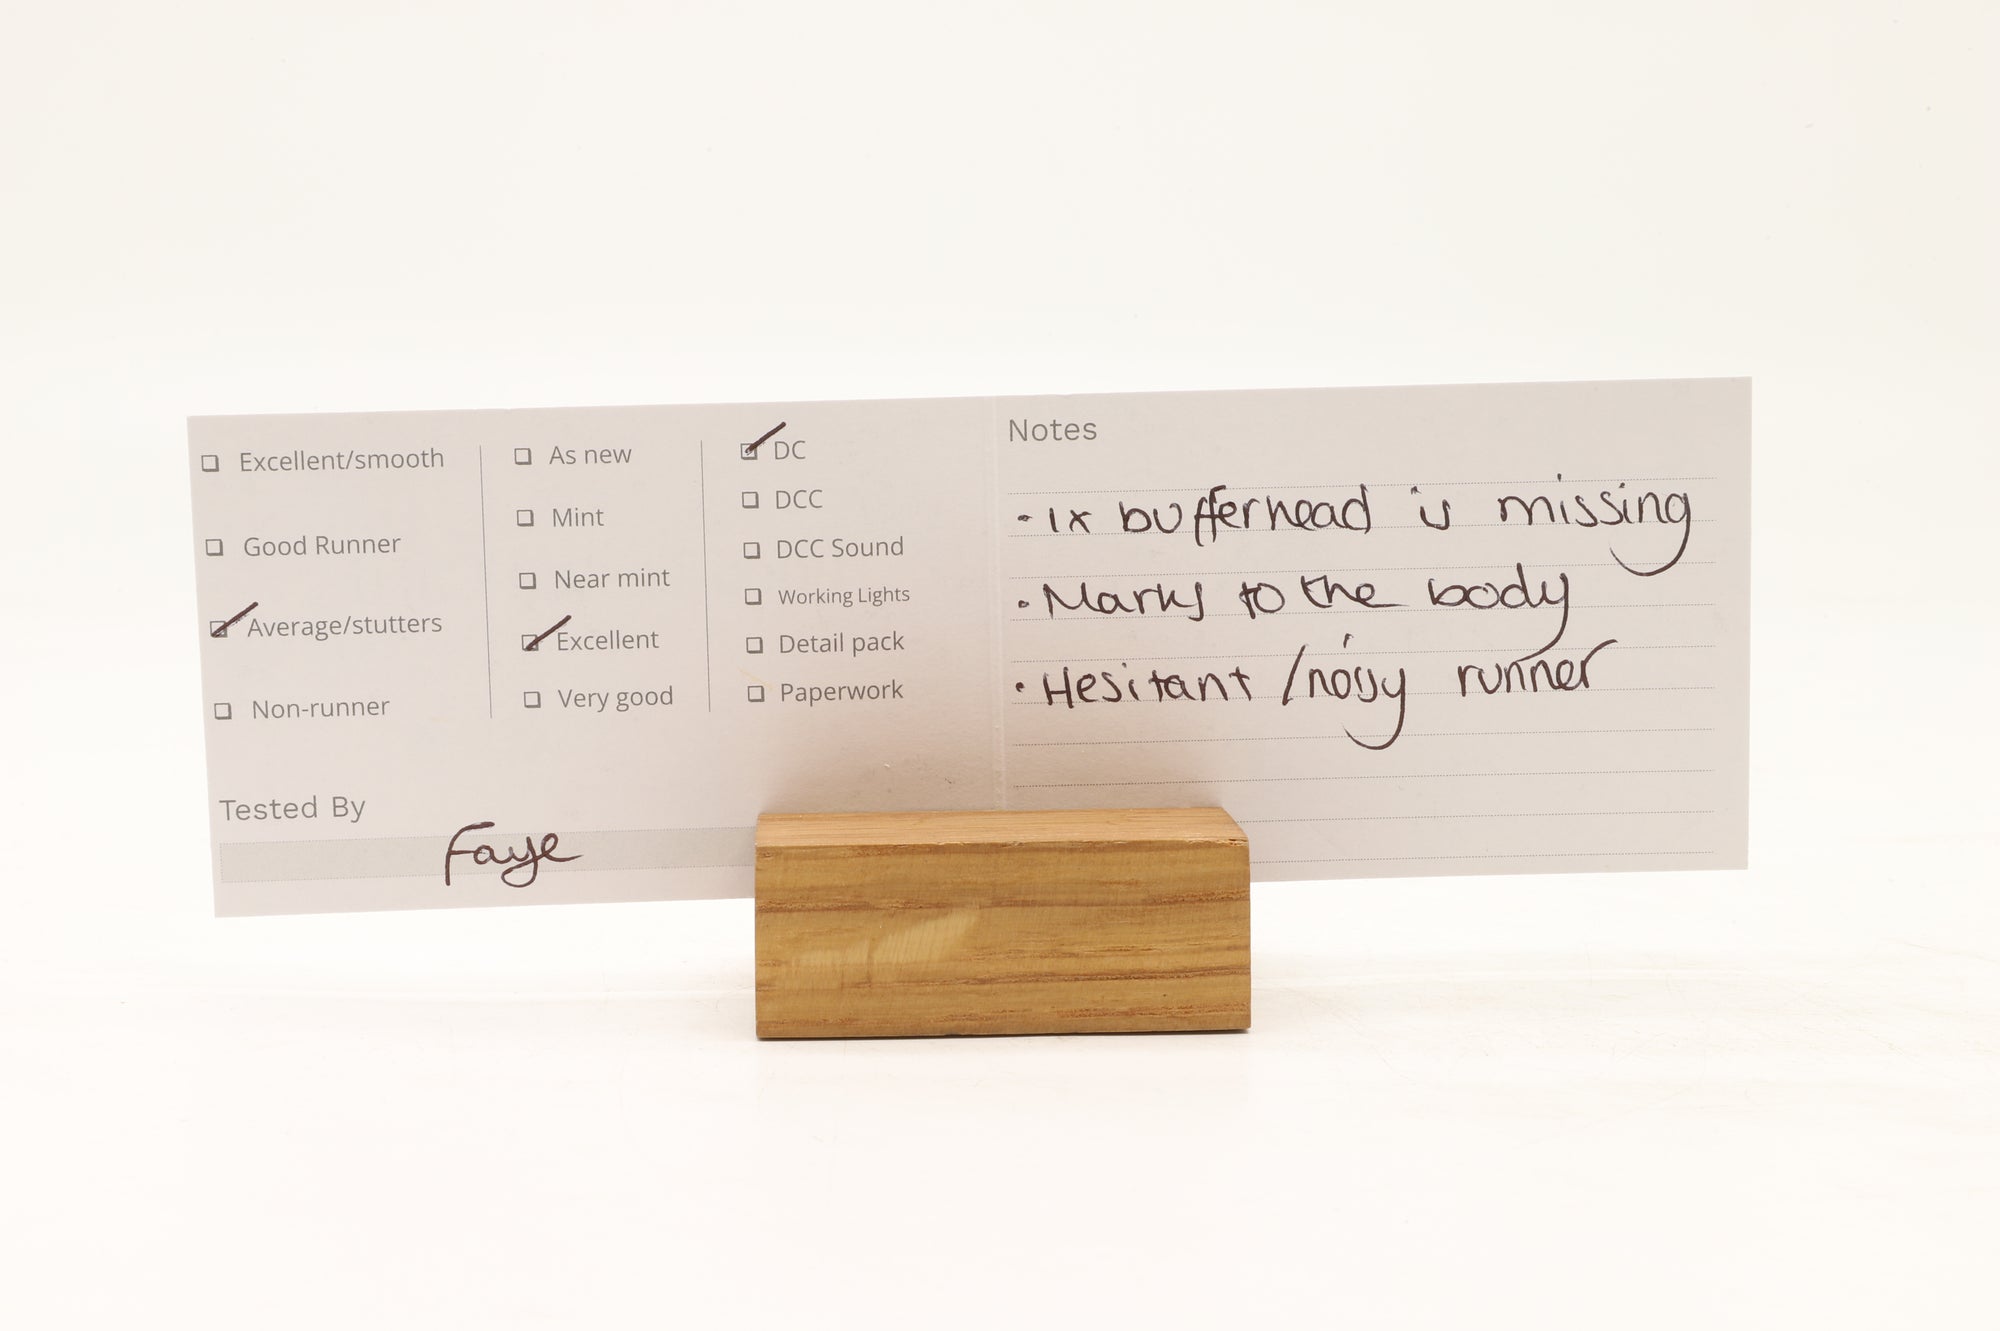 Excellent/smooth
Good Runner
Average/stutters
Non-runner
As new
Mint
Near mint
Excellent
Very good
DC
DCC
DCC Sound
Working Lights
Detail pack
Paperwork
Tested By
Faye
Notes
• 1x bufferhead is missing
• Marks to the body
• Hesitant /noisy runner